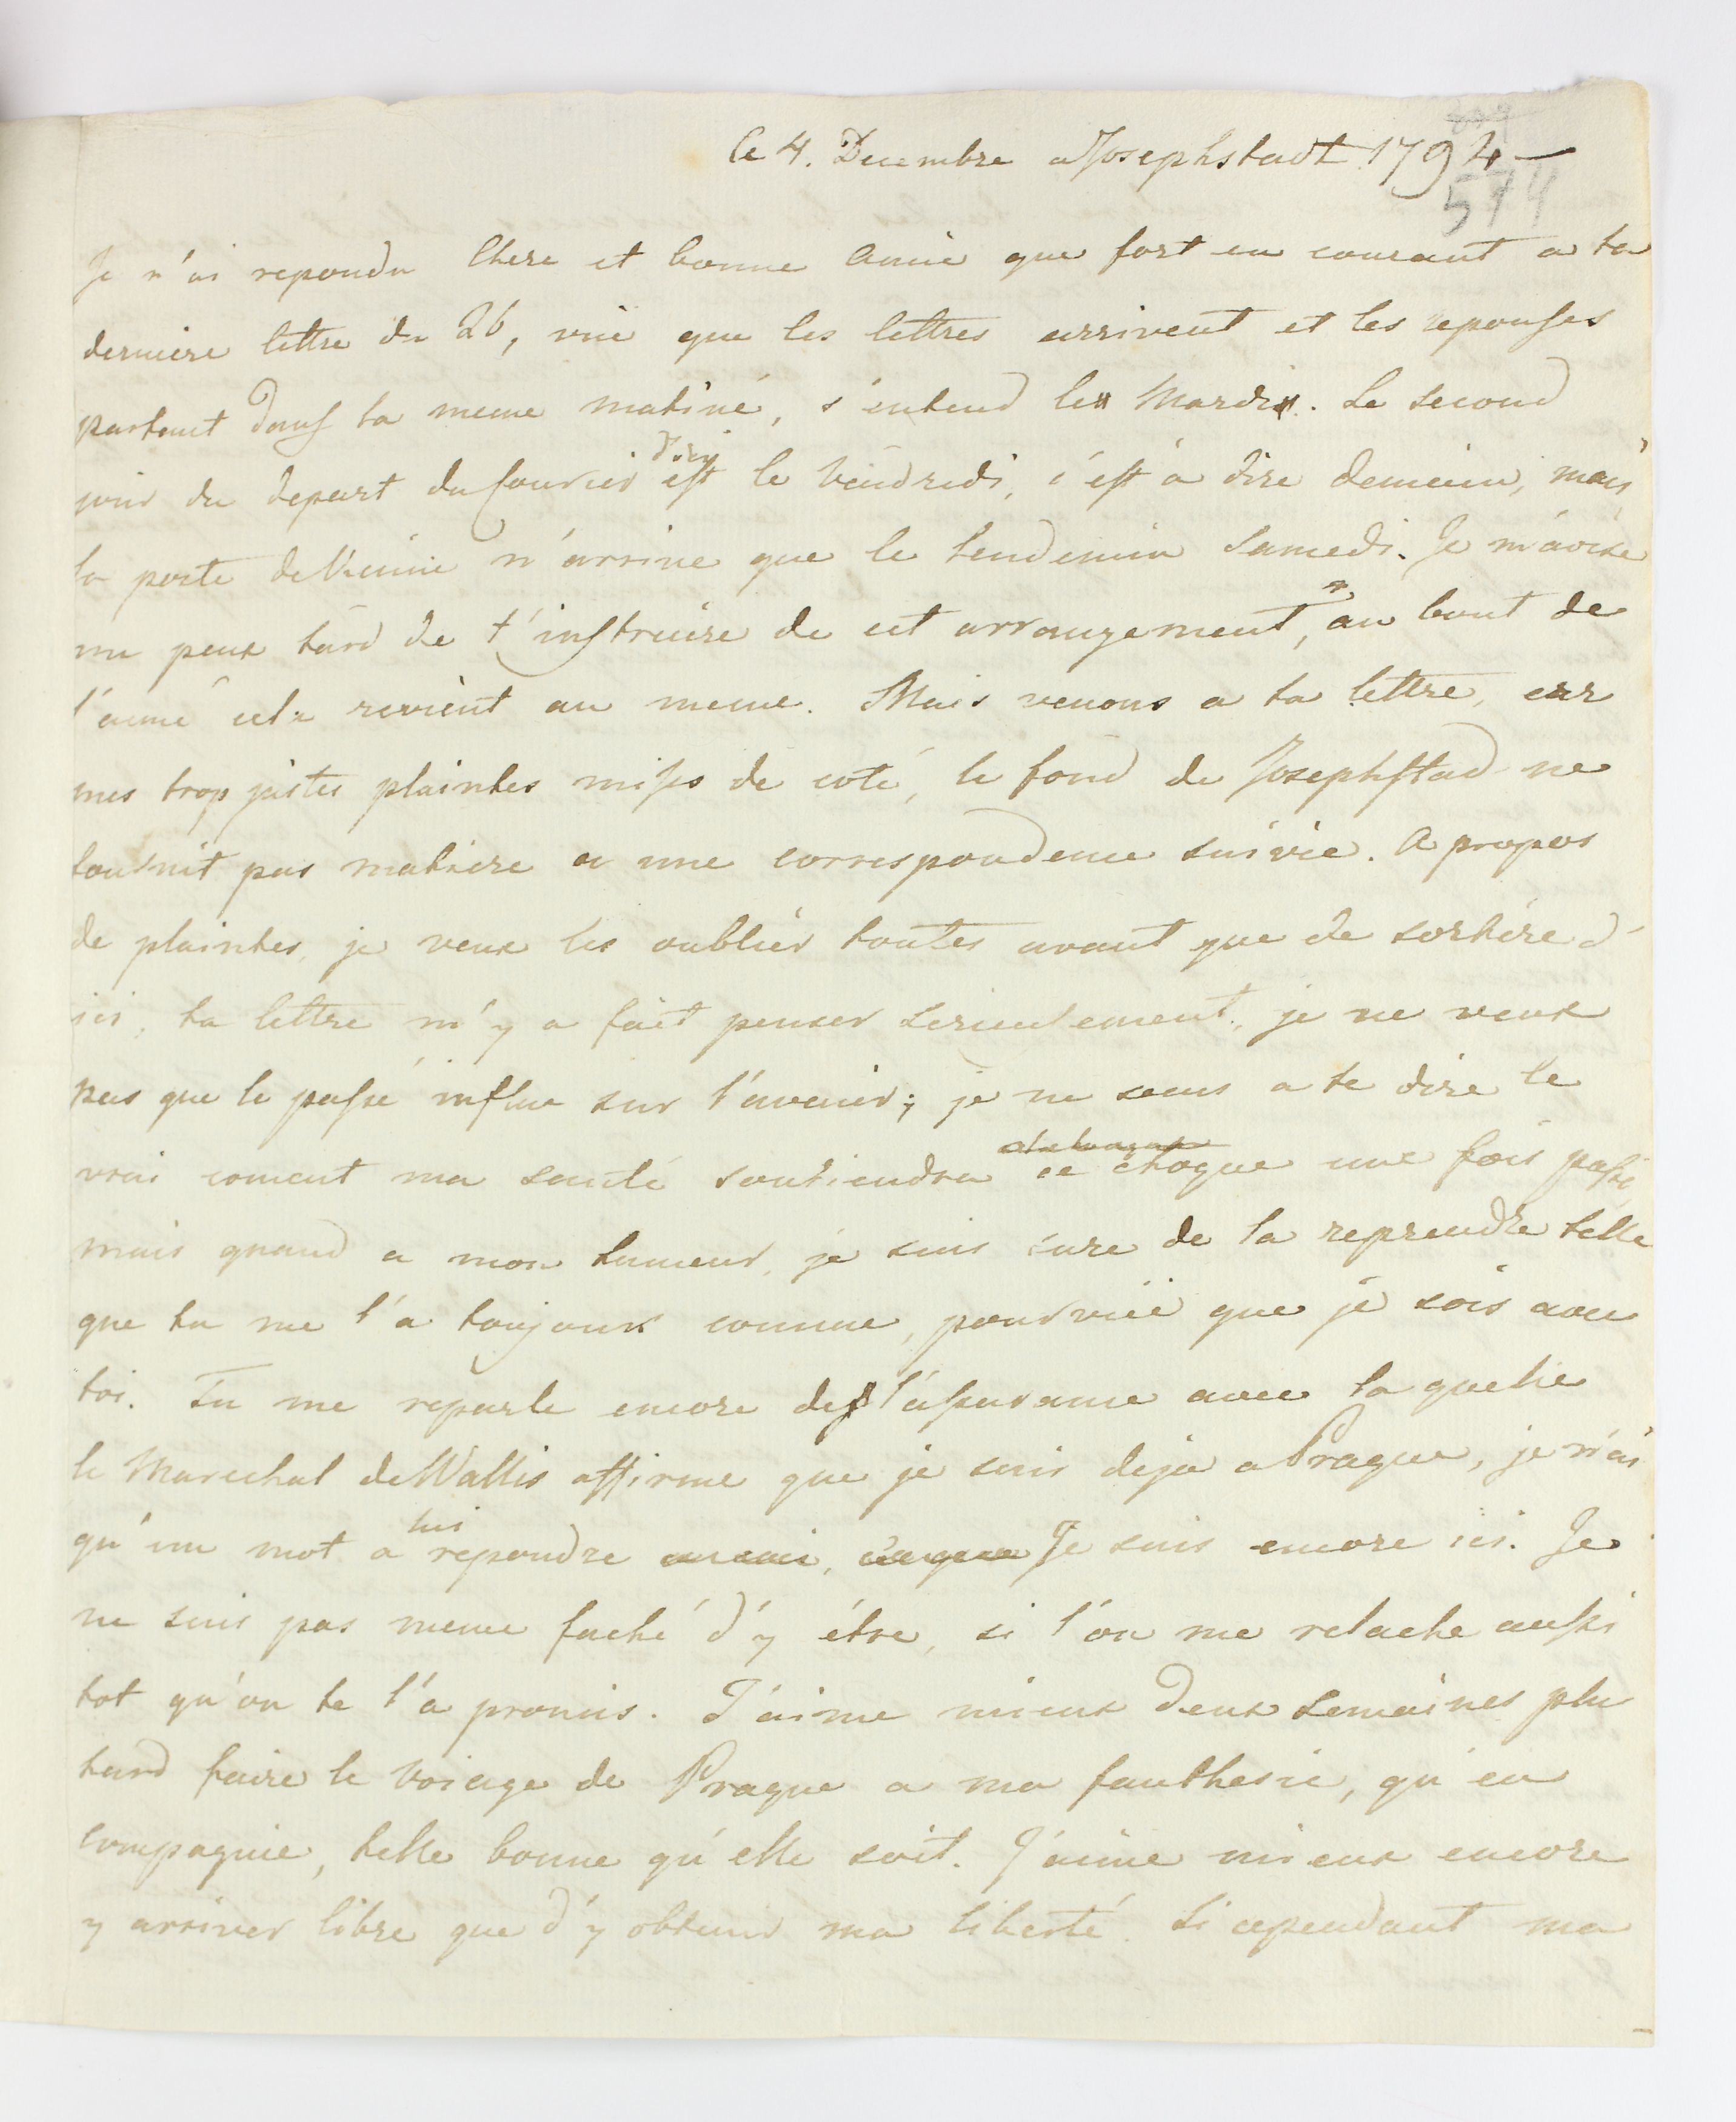 Ce 4. Decembre a Josephstadt 1794 —
574
Je n'ai repondu Chere et bonne Amie que fort en courant a ta
derniere lettre du 26, vüe que les lettres arrivent et les reponses
partent dans la meme matiné, s'entend les Mardis. Le second
jour du depart du Courier d'icy est le Vendredi, c'est a dire demain, mais
la poste de Vienne n'arrive que le lendemin Samedi. Je m'avise
un peux tard de t'instruire de cet arrangement, au bout de
l'aune cela revient au meme. Mais venons a ta lettre, car
mes trop justes plaintes mises de coté, le fond de Josephstad ne
fournit pas matiere a une correspondence suivie. A propos
de plaintes, je veux les oublier toutes avant que de sortire d'
ici, ta lettre m'y a fait penser serieusement, je ne veux
pas que le passé influe sur l'avenir; je ne sais a te dire le
vrai coment ma santé soutiendra ce choque une fois passé
mais quand a mon humeur, je suis sure de la reprendre telle
que tu me l'a toujours connue, pourvüe que je sois avec
toi. Tu me reparle encore de l'assurance avec la quelle
le Marechal de Wallis affirme que je suis deja a Prague, je n'ai
qu'un mot a lui repondre Je suis encore ici. Je
ne suis pas meme faché d'y étre, si l'on me relache aussi
tot qu'on te l'a promis. J'aime mieux deux semaines plu
tard faire le Voiage de Prague a ma fanthesie, qu'en
compagnie, telle bonne qu'elle soit. J'aime mieux encore
y arriver libre que d'y obtenir ma liberté. Si cependant ma